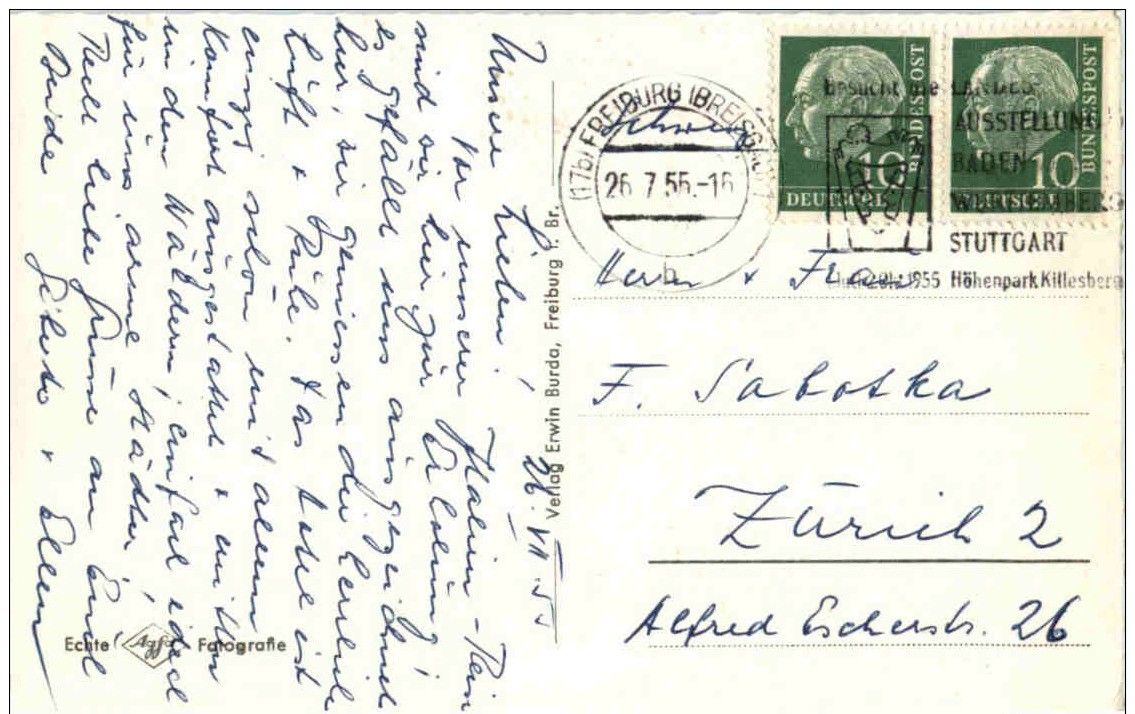 Unsere Lieben!
26 VII 55
Vor unserer Italien-Reise
sind wir hier zur Erholung;
es gefällt uns ausgezeichnet
hier, wir geniessen die herrliche
Luft + Ruhe. Das Hotel ist
einzig schön mit allem
Komfort ausgestattet + mitten
in den Wäldern, einfach ideal
für uns arme Städter!
Recht liebe Grüsse an Euch
Beide + Ellen
Echte Agfa Fotografie
Verlag Erwin Burda, Freiburg i. Br.
(17b) FREIBURG (BREISGAU)
26.7.55.-16
besucht die LANDES-
AUSSTELLUNG
BADEN
WÜRTTEMBERG
STUTTGART
1955 Höhenpark Killesberg
DEUTSCHE BUNDESPOST 10
DEUTSCHE BUNDESPOST 10
Schweiz
Herrn + Frau
F. Sabotka
Zürich 2
Alfred Escherstr. 26